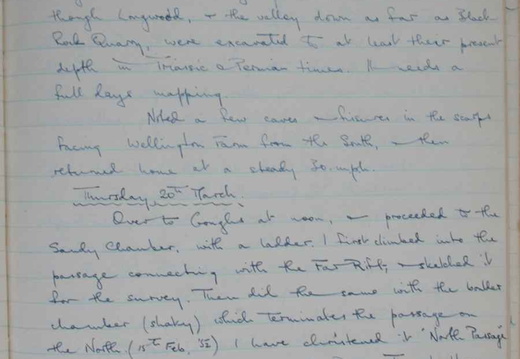 though Longwood, & the valley down as far as Black
Rock Quarry, were excavated to at least their present
depth in Triassic & Permian times. It needs a
full days mapping.
Noted a few caves & fissures in the scarps
facing Wellington Farm from the South, & then
returned home at a steady 30 mph.
Thursday, 20th March.
Over to Goughs at noon, & proceeded to the
Sandy Chamber, with a ladder. I first climbed into the
passage connecting with the Far Rift, & sketched it
for the survey. Then did the same with the boulder
chamber (shaky) which terminates the passage on
the North. (15th Feb, '52) I have christened it "North Passage"